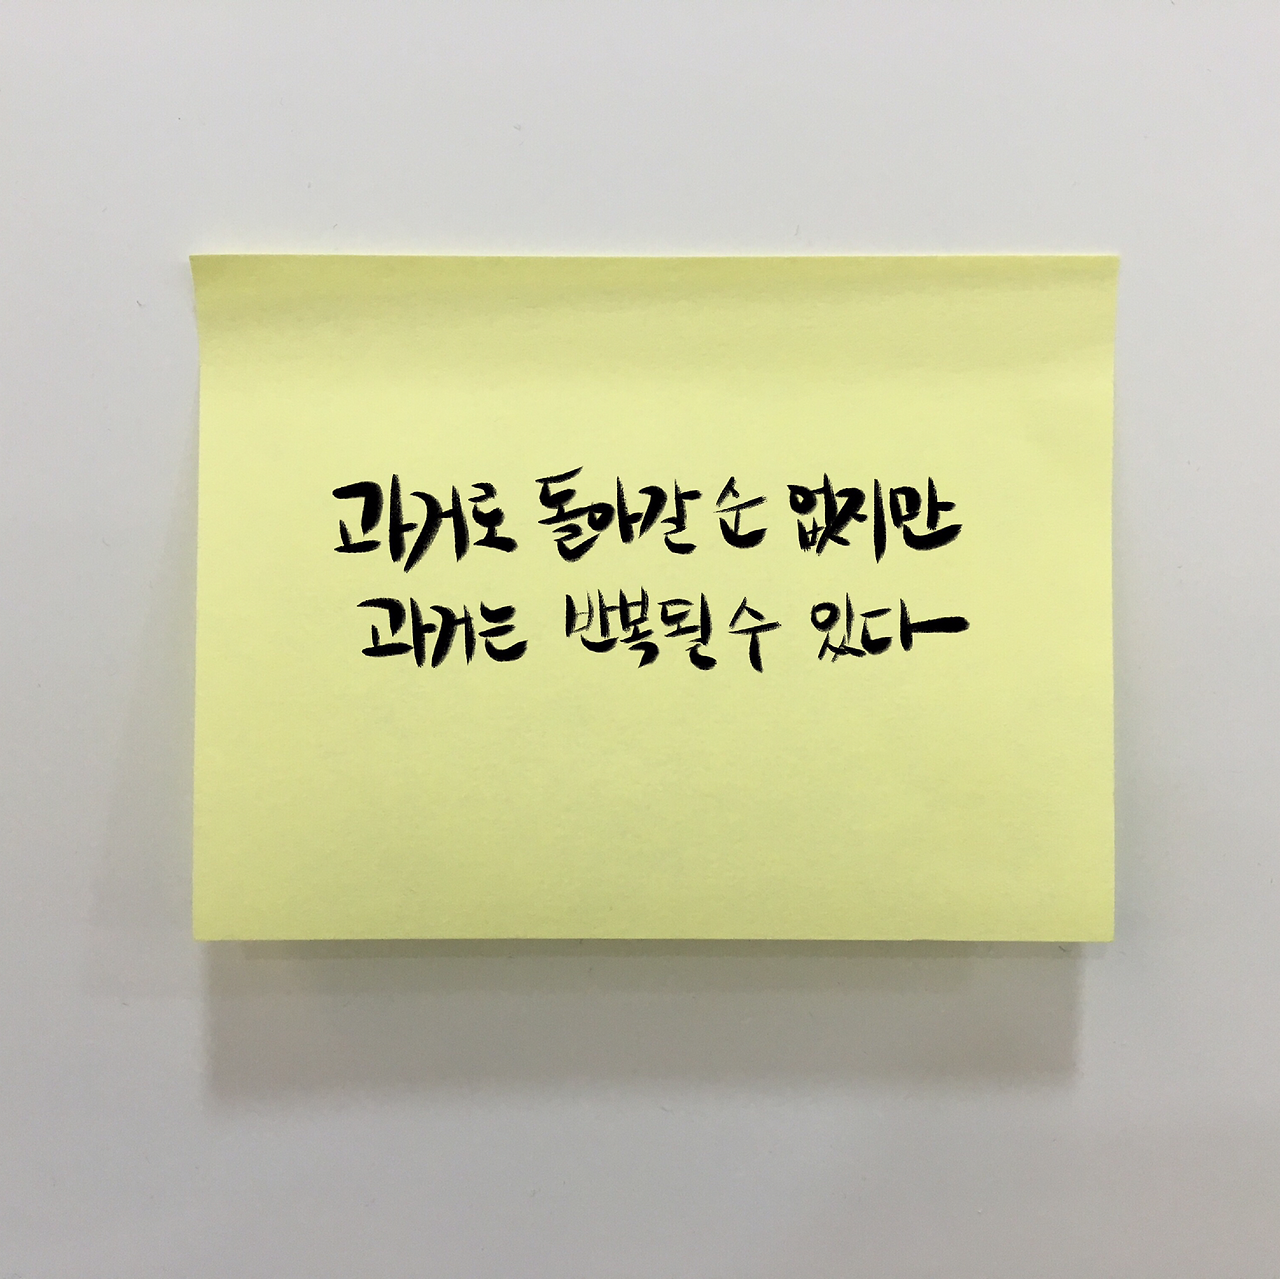 과거로 돌아갈 순 없지만
과거는 반복될 수 있다